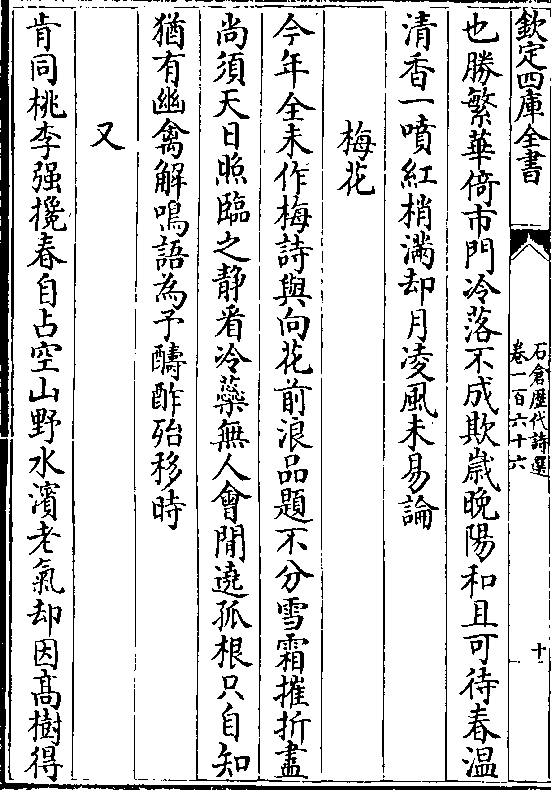 欽定四庫全書
石倉歷代詩選
卷一百六十六
十
也勝繁華倚市門冷落不成欺嵗晚陽和且可待春溫
清香一噴紅梢滿却月凌風未易論
梅花
今年全未作梅詩與向花前浪品題不分雪霜摧折盡
尚須天日照臨之静看冷蘂無人會閒遶孤根只自知
猶有幽禽解鳴語為予醻酢殆移時
又
肯同桃李强攙春自占空山野水濱老氣却因髙樹得